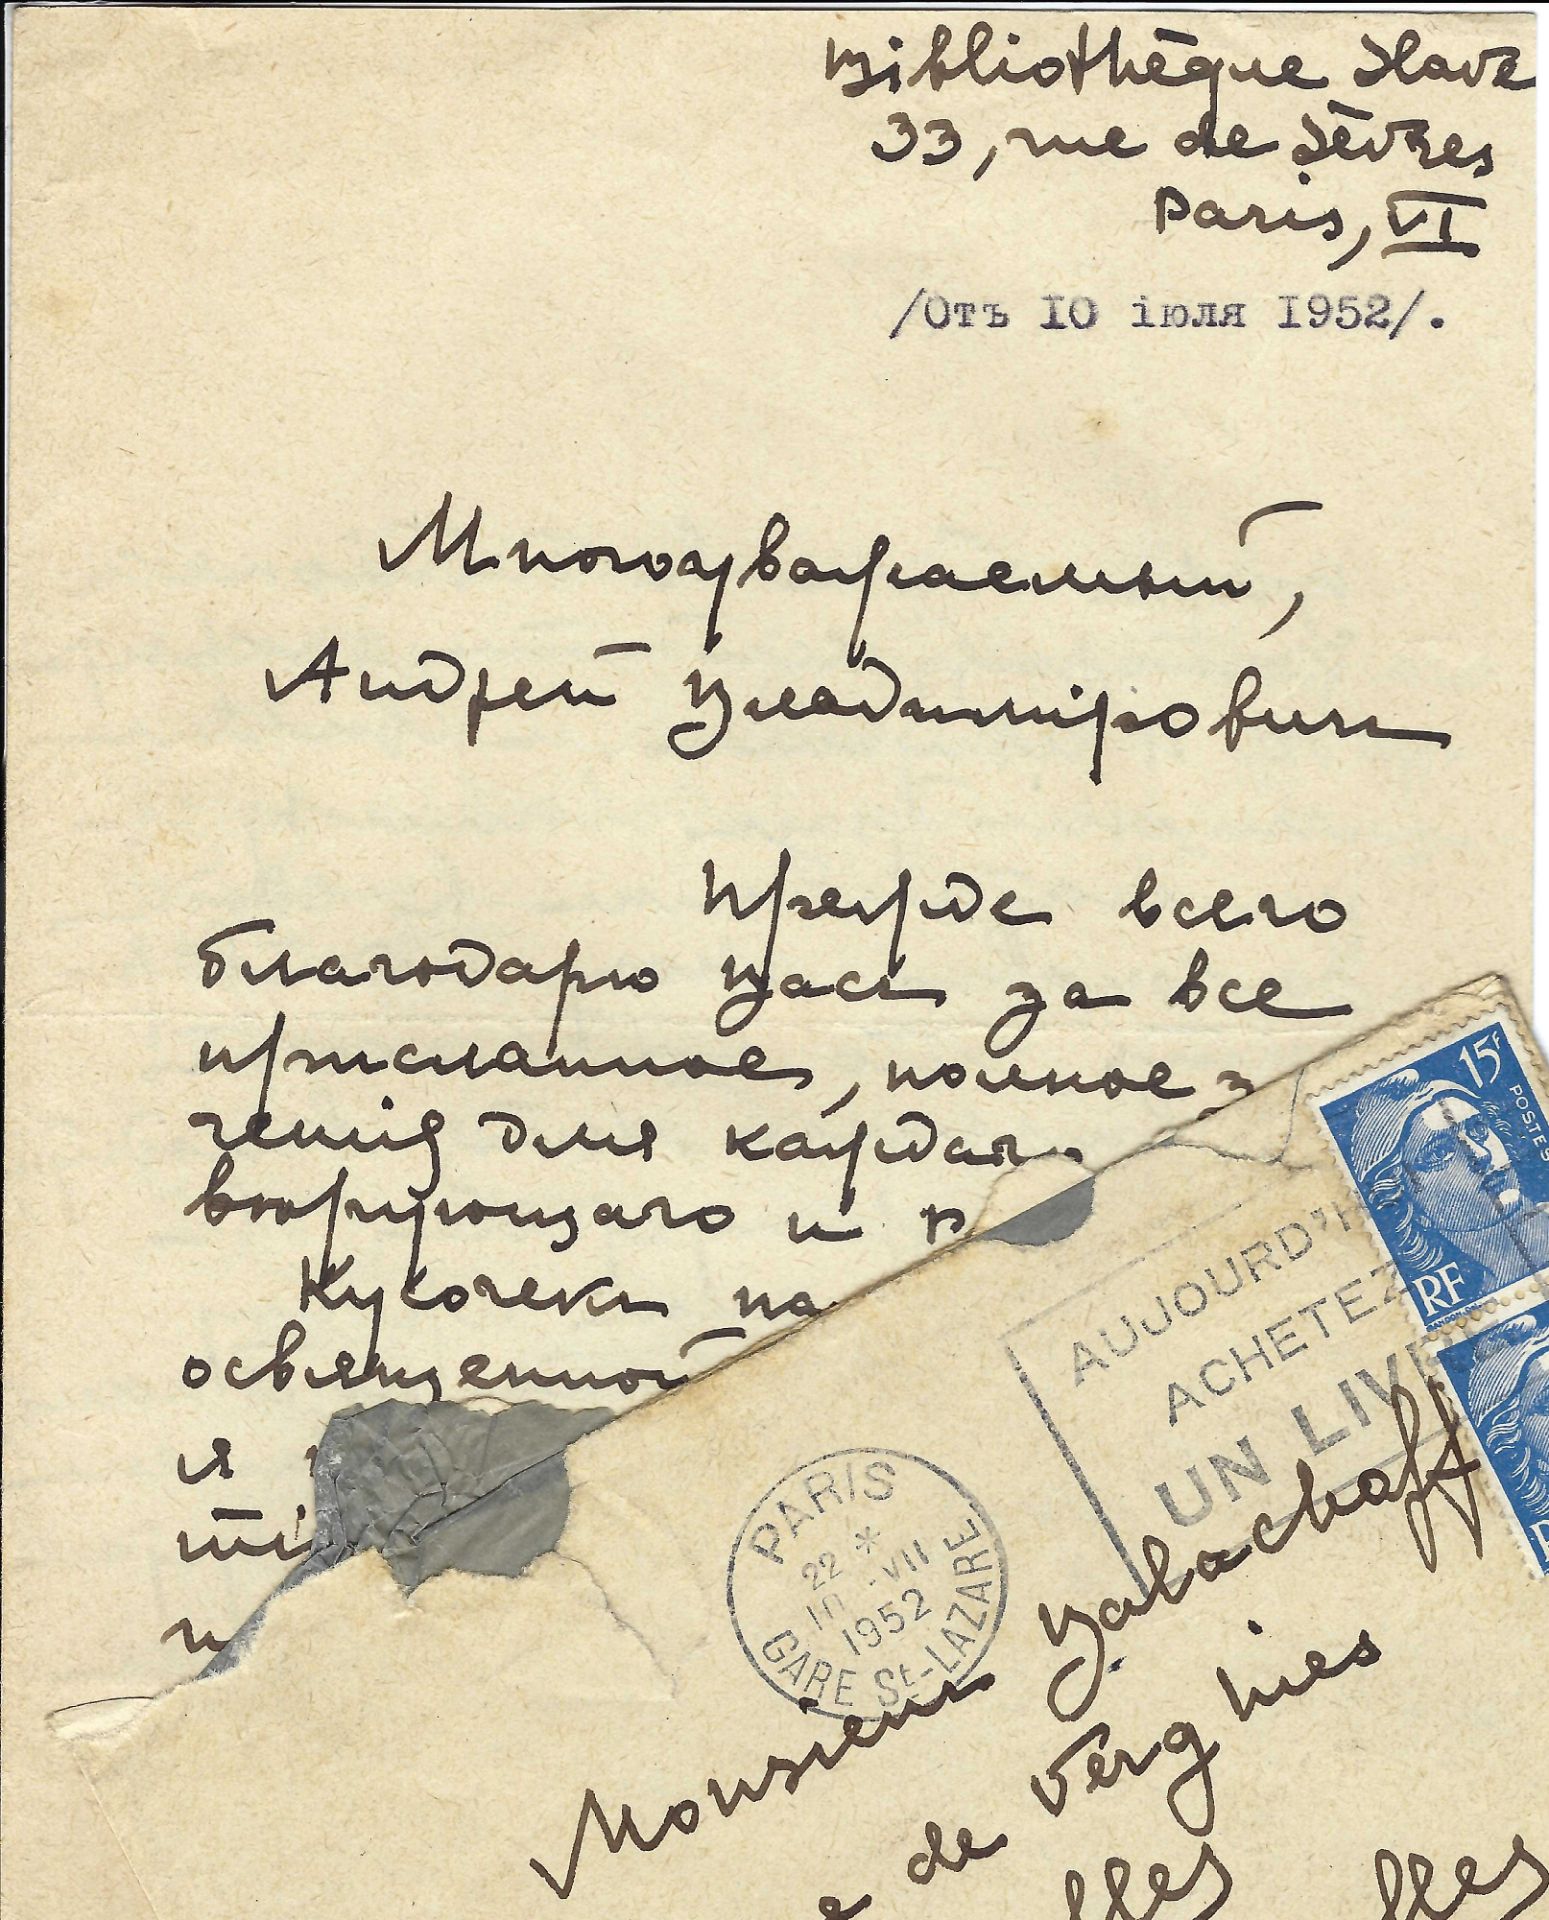 Bibliothèque Slave
33, rue de Sèvres
Paris, VI
/Отъ 10 iюля 1952/.
Многоуважаемый,
Андрей Владимiрович
Прежде всего
благодарю Вась за все
присланное, полное з
ченiя для каждаго
вѣрующаго и р
Кусочекъ па
освященной
я
и
15F
POSTES
RF
AUJOURD'H
ACHETEZ
UN LIV
PARIS
22 *
10 -VII
1952
GARE St-LAZARE
Monsieur Balachoff
de Vergnies
lles